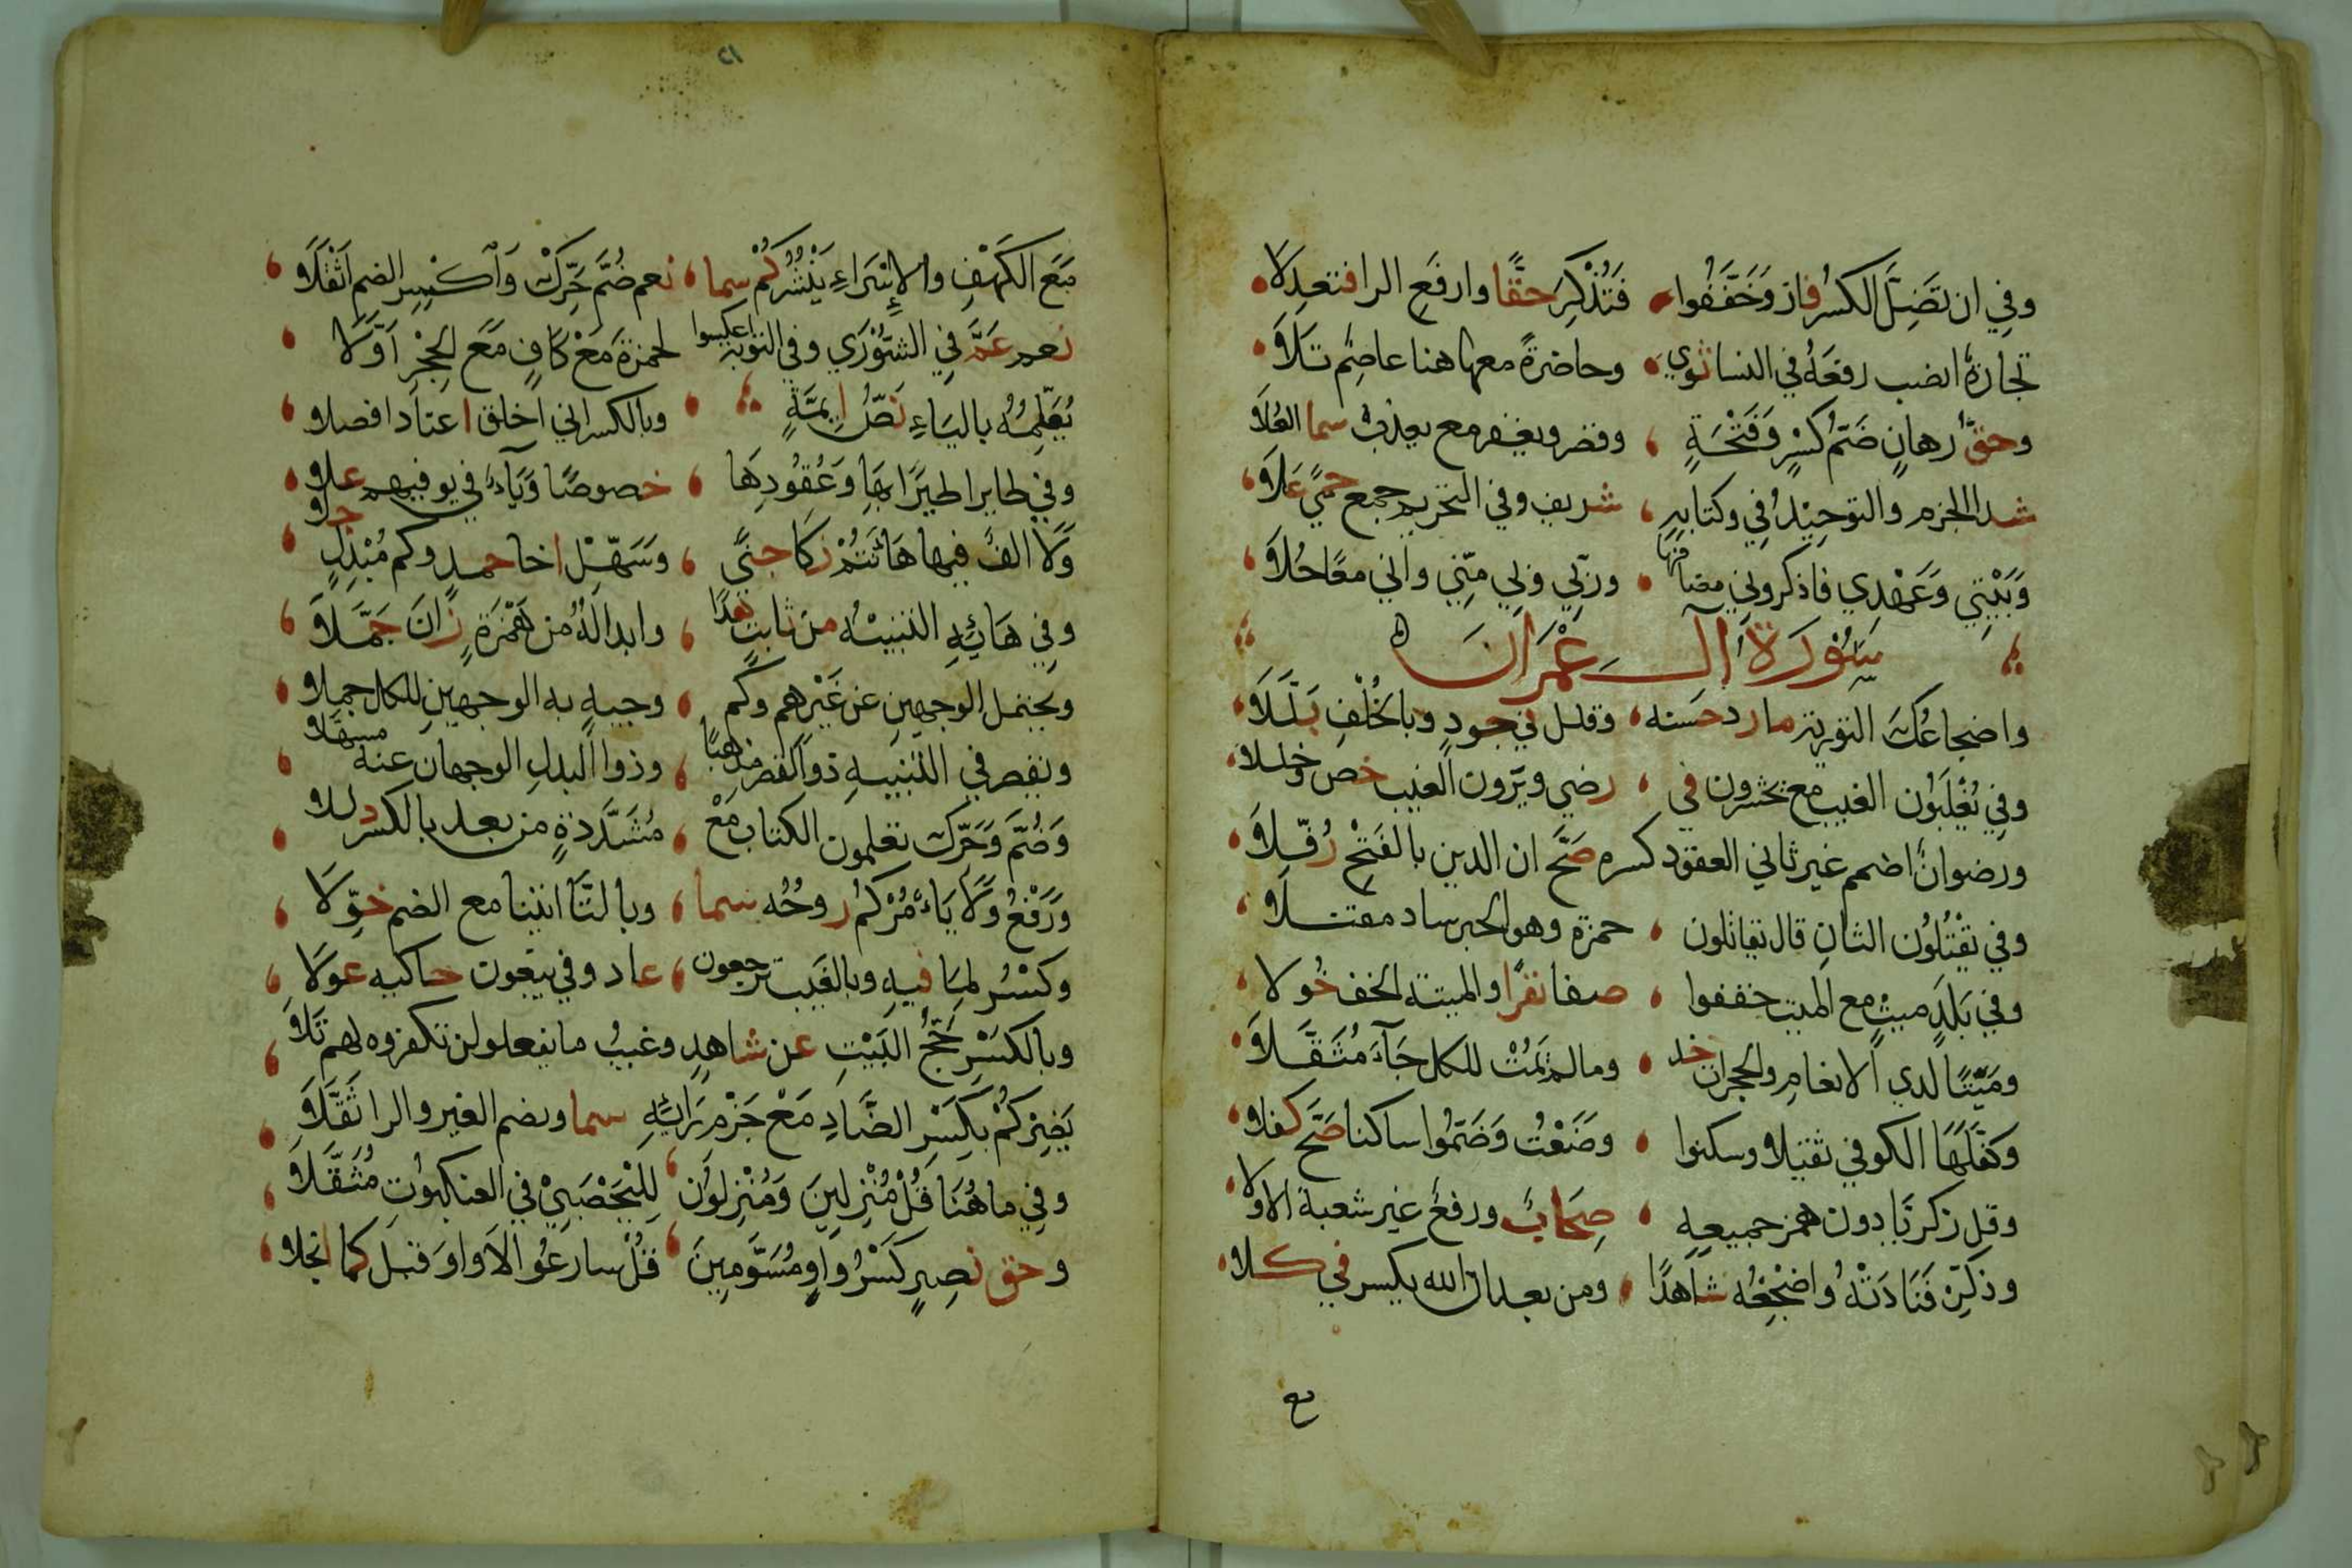 وفي ان تضل الكسر فاز وخففوا فتذكر حقا وارفع الرا فتعدلا
تجارة انصب رفعه في النسا ثوي وحاضرة معها هنا عاصم تلا
وحق رهان ضم كسر وفتحة وقصر ويغفر مع يعذب سما العلا
شذا الجزم والتوحيد في وكتابه شريف وفي التحريم جمع حمي علا
وبيتي وعهدي فاذكروني مضافها وربي وبي مني واني معا حلا
سورة آل عمران
واضجاعك التورية ما رد حسنه وقلل في جود وبالخلف بللا
وفي يغلبون الغيب مع يحشرون في رضي ويرون الغيب خص وخللا
ورضوان اضمم غير ثاني العقود كسره صح ان الدين بالفتح رفلا
وفي يقتلون الثان قال يقاتلون حمزة وهو الحبر ساد مقتلا
وفي بلد ميت مع الميت خففوا صفا نفرا والميتة الخف خولا
وميتا لدي الانعام والحجرات خذ وما لم يمت للكل جآء مثقلا
وكفلها الكوفي ثقيلا وسكنوا وضعت وضموا ساكنا صح كفلا
وقل زكريا دون همز جميعه صحاب ورفع غير شعبة الاولا
وذكر فناداته واضجعه شاهدا ومن بعد ان الله يكسر في كلا
مع
٢١
مع الكهف والاسراء يبشركم سما نعم ضم حرك واكسر الضم اثقلا
نعم عم في الشوري وفي التوبة اعكسوا لحمزة مع كاف مع الحجر اولا
يعلمه بالياء نص ايمة وبالكسر اني اخلق اعتاد افصلا
وفي طايرا طيرا بها وعقودها خصوصا وياء في يوفيهم علا
ولا الف فيها هانتم زكا جني وسهل اخا حمد وكم مبدل جلا
وفي هائه التنبيه من ثابت هدا وابداله من همزة زان جملا
ويحتمل الوجهين عن غيرهم وكم وجيه به الوجهين للكل جملا
ويقصر في التنبيه ذو القصر مذهبا وذوا البدل الوجهان عنه مسهلا
وضم وحرك تعلمون الكتاب مع مشددة من بعد بالكسر ذللا
ورفع ولا ياءمركم روحه سما وبالتا اتينا مع الضم خولا
وكسر لما فيه وبالغيب ترجعون عاد وفي يبغون حاكيه عولا
وبالكسر حج البيت عن شاهد وغيب ما يفعلو لن تكفروه لهم تلا
يضركم بكسر الضاد مع جزم رائه سما ويضم الغير والرا ثقلا
وفي ما هنا قل منزلين ومنزلون لليحصبي في العنكبوت مثقلا
وحق نصير كسر واو مسومين قل سارعوا لا واو قبل كما انجلا